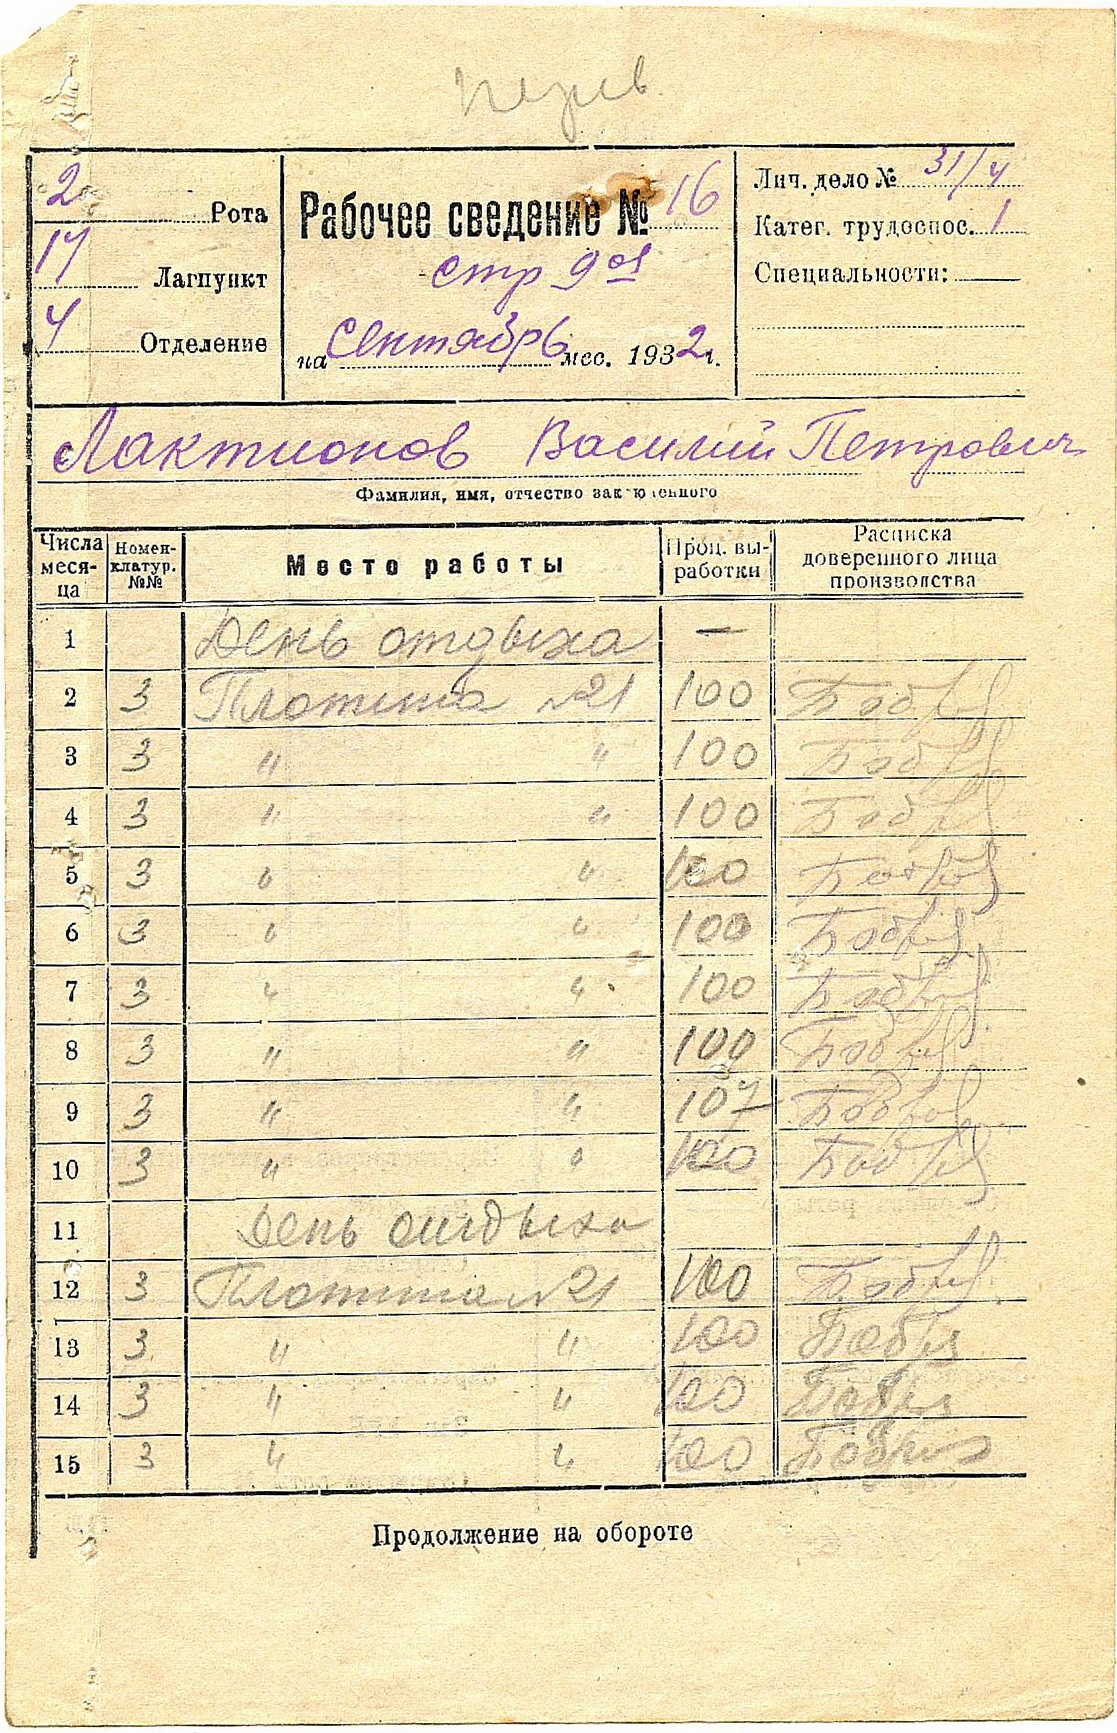 2 Рота
17 Лагпункт
4 Отделение
Рабочее сведение № 16
стр 9
на Сентябрь мес. 1932 г.
Лич. дело № 31/4
Катег. трудоспос. 1
Специальности:
Лактионов Василий Петрович
Фамилия, имя, отчество заключенного
Числа меся-ца Номен-клатур. №№ Место работы Проц. вы-работки Расписка доверенного лица производства
1 День отдыха —
2 3 Плотина №21 100
3 3 " " 100
4 3 " " 100
5 3 " " 100
6 3 " " 100
7 3 " " 100
8 3 " " 100
9 3 " " 107
10 3 " " 100
11 День отдыха
12 3 Плотина №21 100
13 3 " " 100
14 3 " " 100
15 3 " " 100
Продолжение на обороте